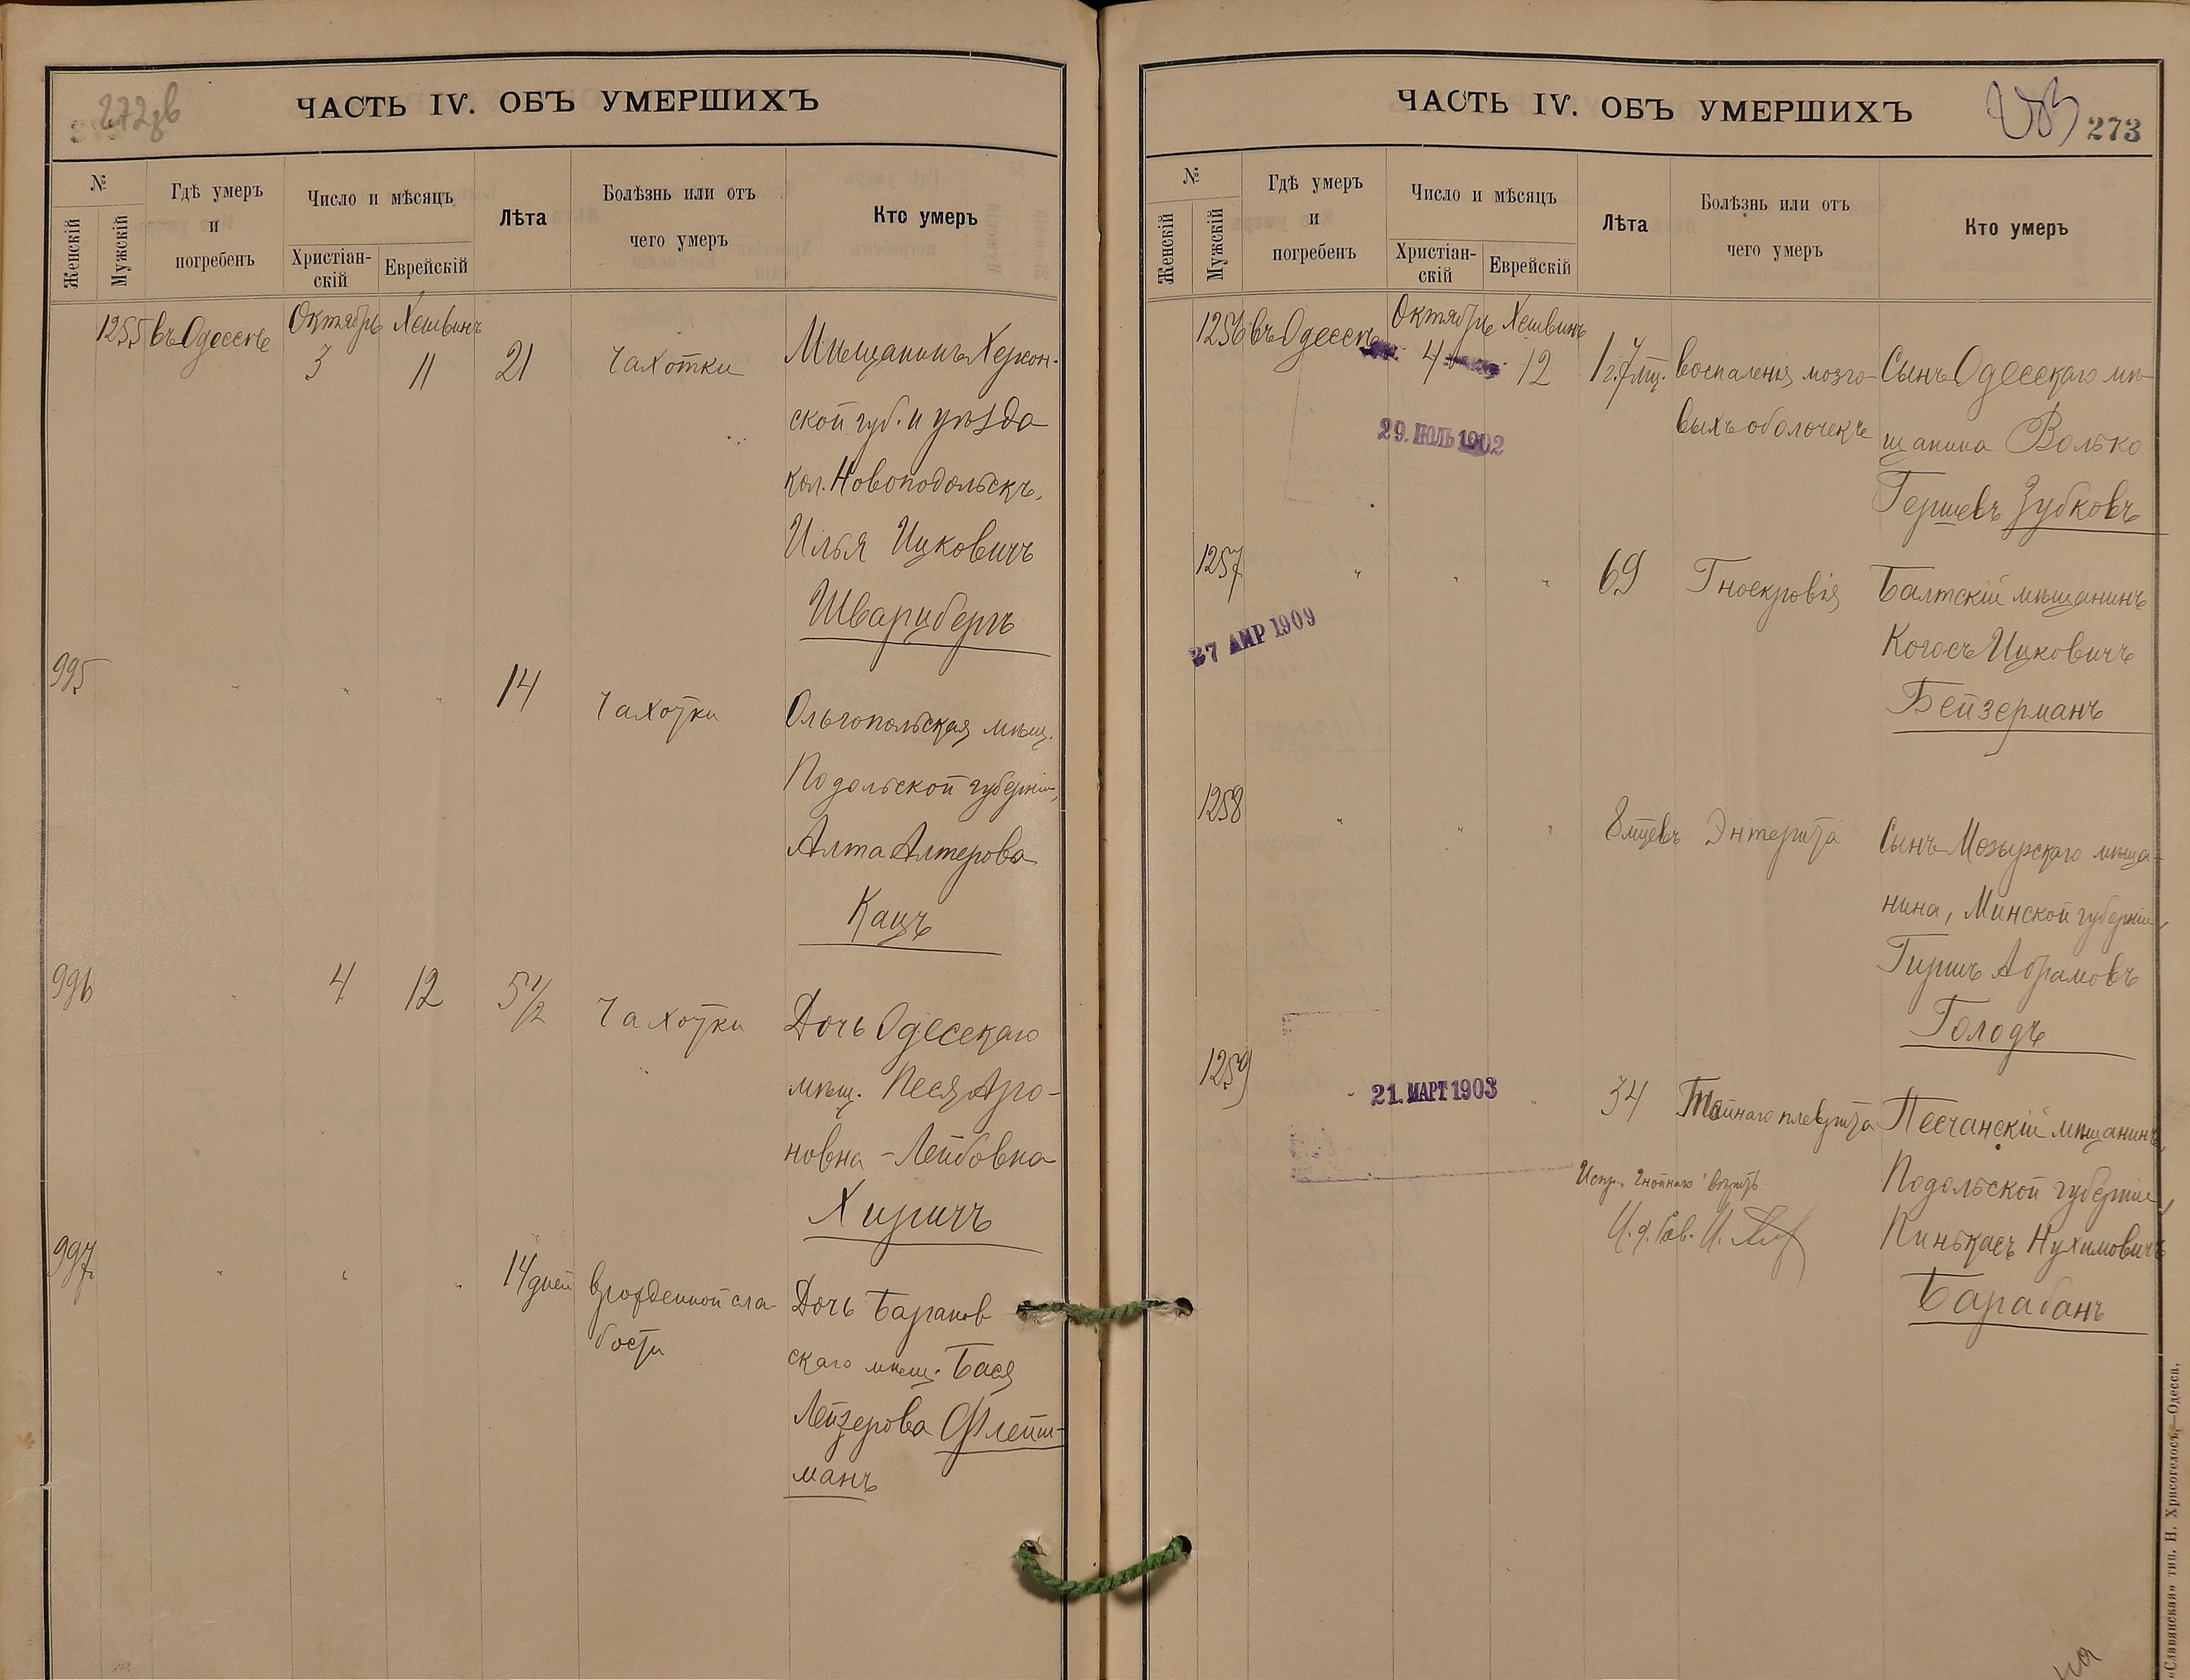 272зв
ЧАСТЬ IV. ОБЪ УМЕРШИХЪ
№
Женскій
Мужскій
Гдѣ умеръ
и
погребенъ
Число и мѣсяцъ
Христіан-
скій
Еврейскій
Лѣта
Болѣзнь или отъ
чего умеръ
Кто умеръ
1255 въ Одессѣ Октябрь Хешвинъ
3 11 21 Чахотки Мѣщанинъ Херсон-
ской губ. и уѣзда
кол. Новоподольскъ,
Илья Ицковичъ
Шварцбергъ
995 " " " 14 Чахотки Ольгопольская мѣщ.
Подольской губерніи,
Алта Алтерова
Кацъ
996 " 4 12 5½ Чахотки Дочь Одесскаго
мѣщ. Песя Аро-
новна-Лейбовна
Хиричъ
997 " " " 14 дней врожденной сла-
бости
Дочь Баранов
скаго мѣщ. Бася
Лейзерова Флейш-
манъ
ЧАСТЬ IV. ОБЪ УМЕРШИХЪ
273
№
Женскій
Мужскій
Гдѣ умеръ
и
погребенъ
Число и мѣсяцъ
Христіан-
скій
Еврейскій
Лѣта
Болѣзнь или отъ
чего умеръ
Кто умеръ
1256 въ Одессѣ Октябрь Хешвинъ
4 12 1 г. 7 мц. воспаленія мозго-
выхъ оболочекъ
Сынъ Одесскаго мѣ-
щанина Волько
Гершевъ Зубковъ
29. ІЮЛЬ 1902
1257 " " " 69 Гноекровія Балтскій мѣщанинъ
Когосъ Ицковичъ
Бейзерманъ
27 АПР 1909
1258 " " " 8 мцевъ Энтерита Сынъ Мозырскаго мѣща-
нина, Минской губерніи,
Гиршъ Абрамовъ
Голодъ
1259 " 21. МАРТ 1903 " 34 Тайнаго плеврита Песчанскій мѣщанинъ,
Подольской губерніи,
Пинькасъ Нухимовичъ
Барабанъ
Испр. "Гнойнаго" вѣрить.
И. д. Рав. И.
«Славянская» тип. Н. Хрисогелосъ,—Одесса.